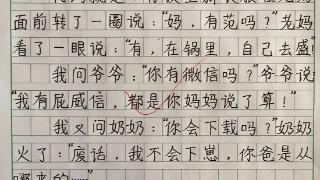 面前转了一圈说:“妈,有范吗?”老妈
看了一眼说:“有,在锅里,自己去盛!”
我问爷爷:“你有微信吗?”爷爷说
“我有屁威信,都是你妈妈说了算!”
我又问奶奶:“你会下载吗?”奶奶
火了:“废话,我不会下崽,你爸是从
哪来的……”